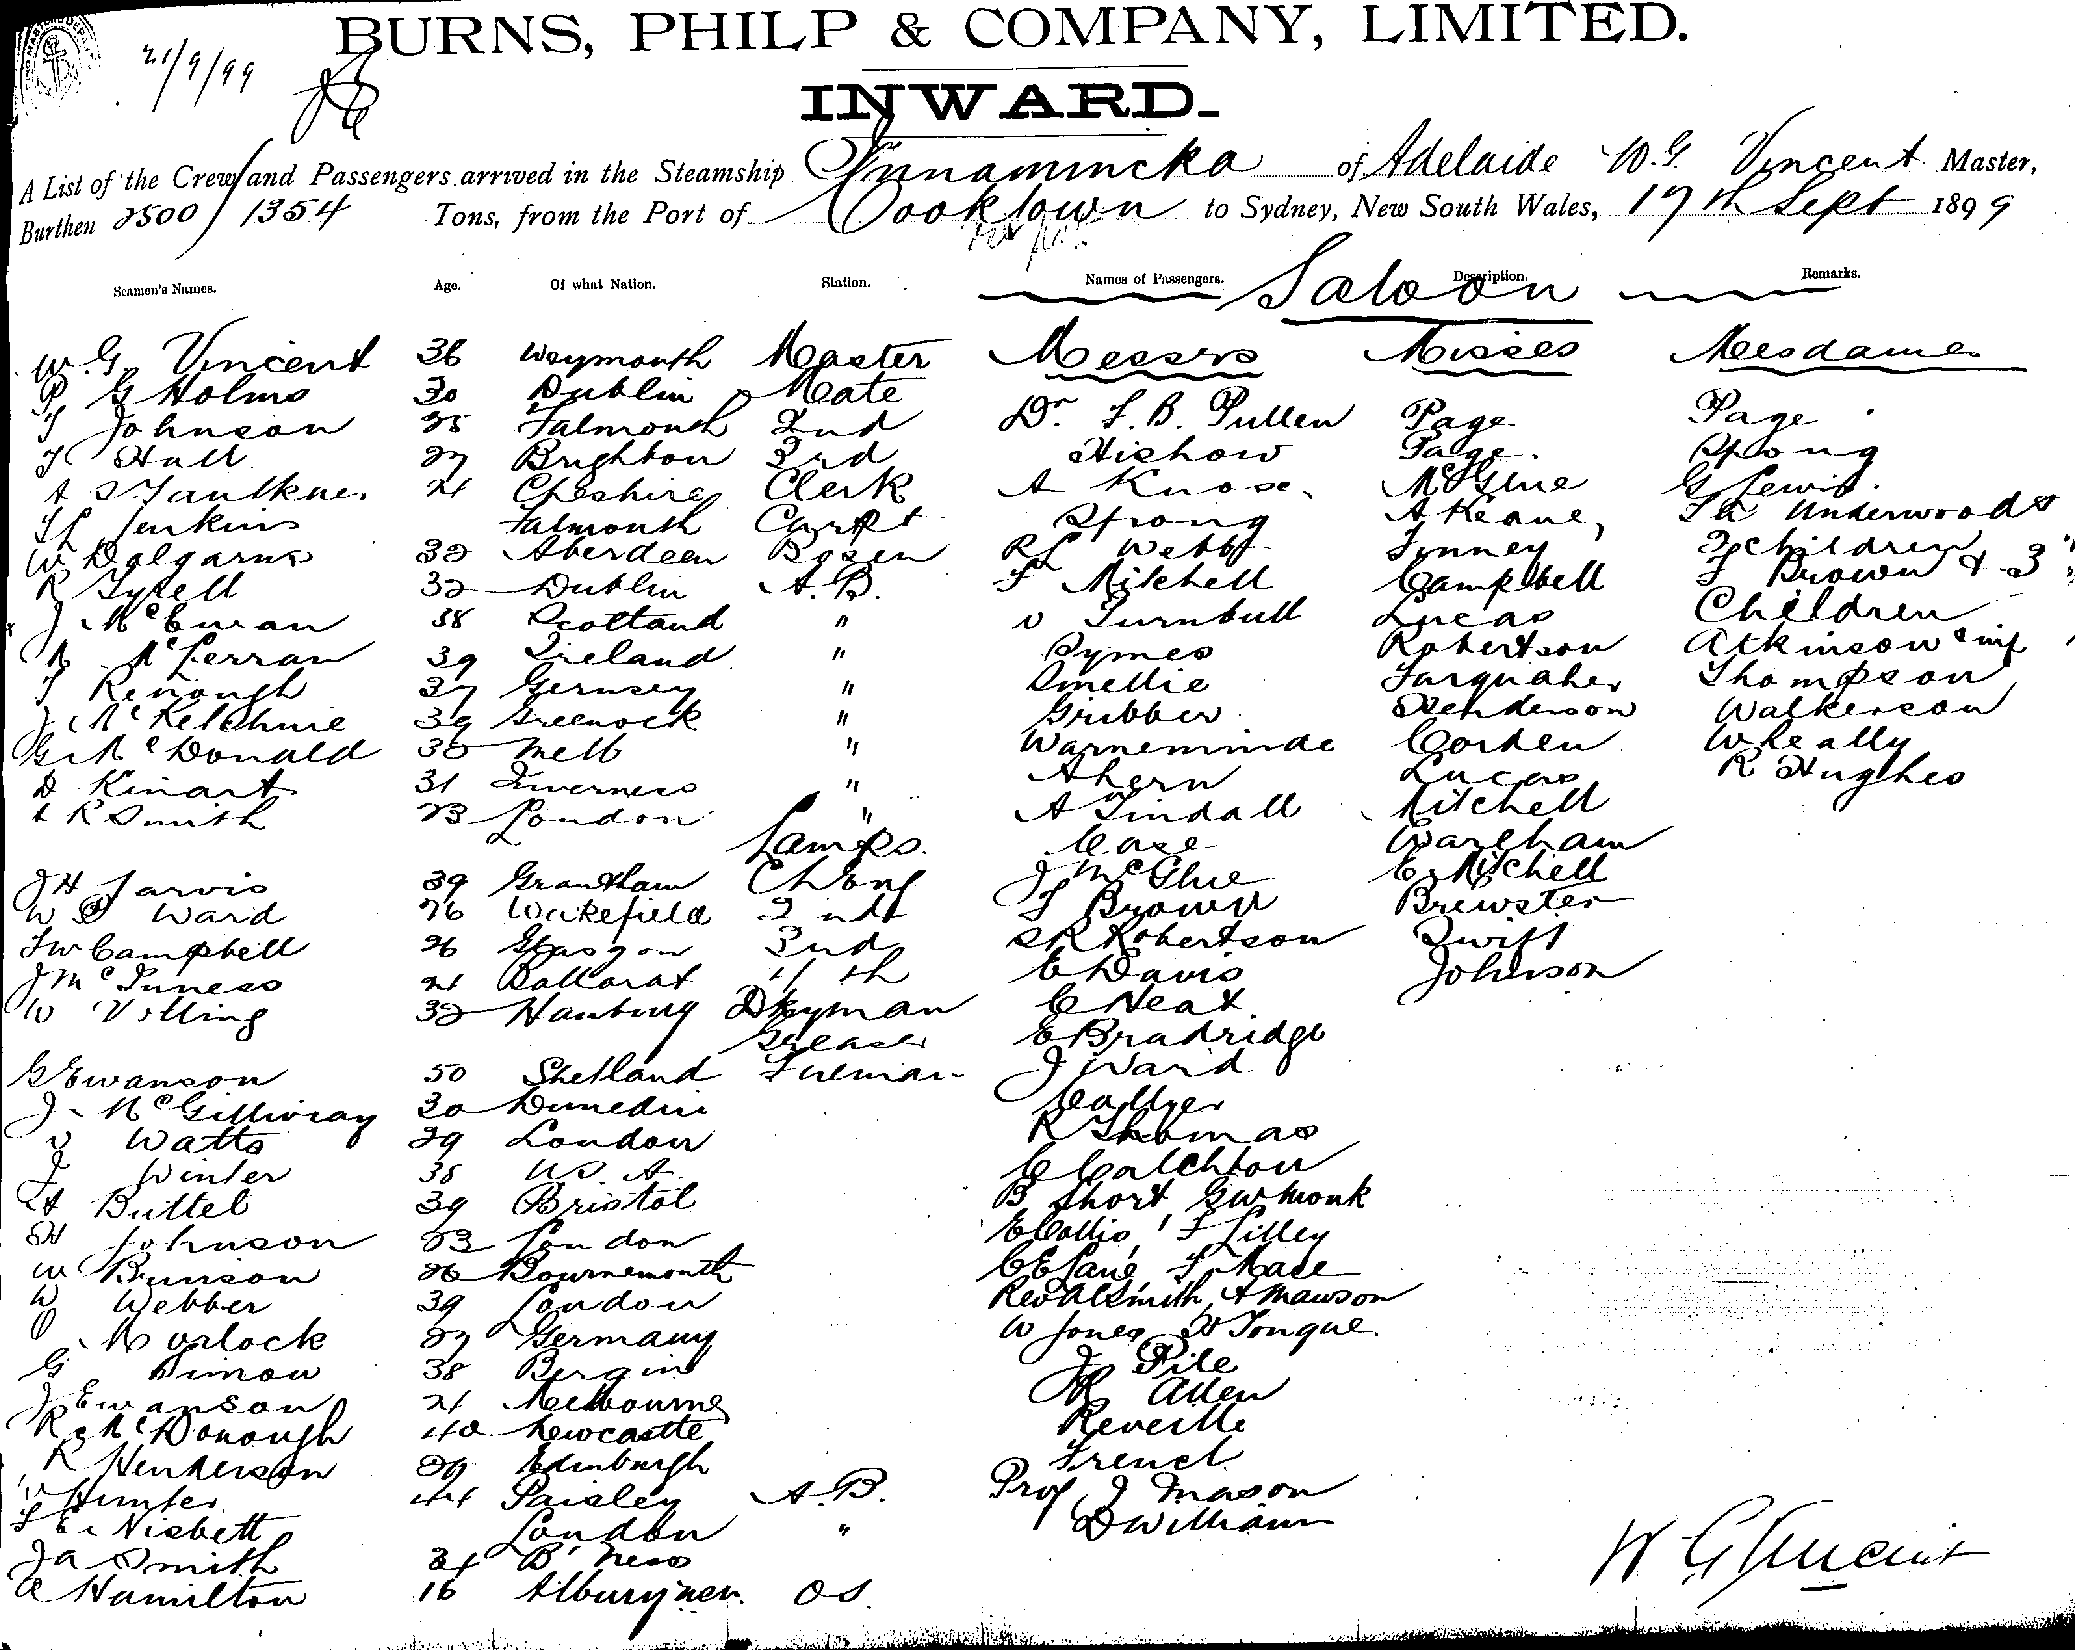 21/9/99
BURNS, PHILP & COMPANY, LIMITED.
INWARD.
A List of the Crew and Passengers arrived in the Steamship Innamincka of Adelaide W.G. Vincent Master,
Burthen 2500/1354 Tons, from the Port of Cooktown to Sydney, New South Wales, 19th Sept 1899
Seamen's Names. Age. Of what Nation. Station. Names of Passengers. Description. Remarks.
Saloon
W.G. Vincent 36 Weymouth Master Messrs Misses Mesdames
P G Holms 30 Dublin Mate
T Johnson 25 Falmouth 2nd Dr F. B. Pullen Page Page
Hall 27 Brighton 3rd Hishow Page Strong
Faulkner 21 Cheshire Clerk A Knose McGlue G Lewis
Jenkins Falmouth Carpt Strong A Keane Underwood &
W Dalgarns 32 Aberdeen Bosen Webb Finney 2 children
R Tyrell 32 Dublin A.B. F Mitchell Campbell F Brown & 3
J McEwan 38 Scotland " Turnbull Lucas Children
McFerran 39 Ireland " Symes Robertson Atkinson & inf
T Renough 37 Gernsey " Smellie Farquaher Thompson
J McKetchnie 39 Greenock " Gribber Henderson Walkerson
McDonald 32 Melb " Warneminde Corden Wheally
D Kinart 31 Inverness " Ahern Lucas R Hughes
R Smith 23 London " A Tindall Mitchell
Lamps. Case Wareham
J H Jarvis 39 Grantham Ch Eng J McGlue E Mitchell
W Ward 26 Wakefield 2nd F Brown Brewster
F W Campbell 26 Glasgow 3rd S R Robertson Swift
J McInness 21 Ballarat 4th C Davis Johnson
W Villing 32 Hamburg Dkyman C Neat
Greaser E Bradridge
G Ewanson 50 Shetland Fireman J Ward
J McGillivray 30 Dunedin
Watts 29 London R Thomas
J Winter 35 U.S.A. C Calchton
Buttel 39 Bristol B Short, G W Monk
H Johnson 23 London E Collis, F Lilley
W Brunson 26 Bournemouth C E Lane, F Mace
W Webber 39 London Rev A C Smith, A Mawson
Morlock 27 Germany W Jones H Tongue
G Simon 38 Bergin J Pile
J Ewanson 21 Melbourne Allen
R McDonough 40 Newcastle Reveille
R Henderson 29 Edinburgh French
Hunter 44 Paisley A.B. Prof J Mason
F E Nisbett London " D William
J A Smith 21 B'Ness
A Hamilton 16 Albury OS
W G Vincent